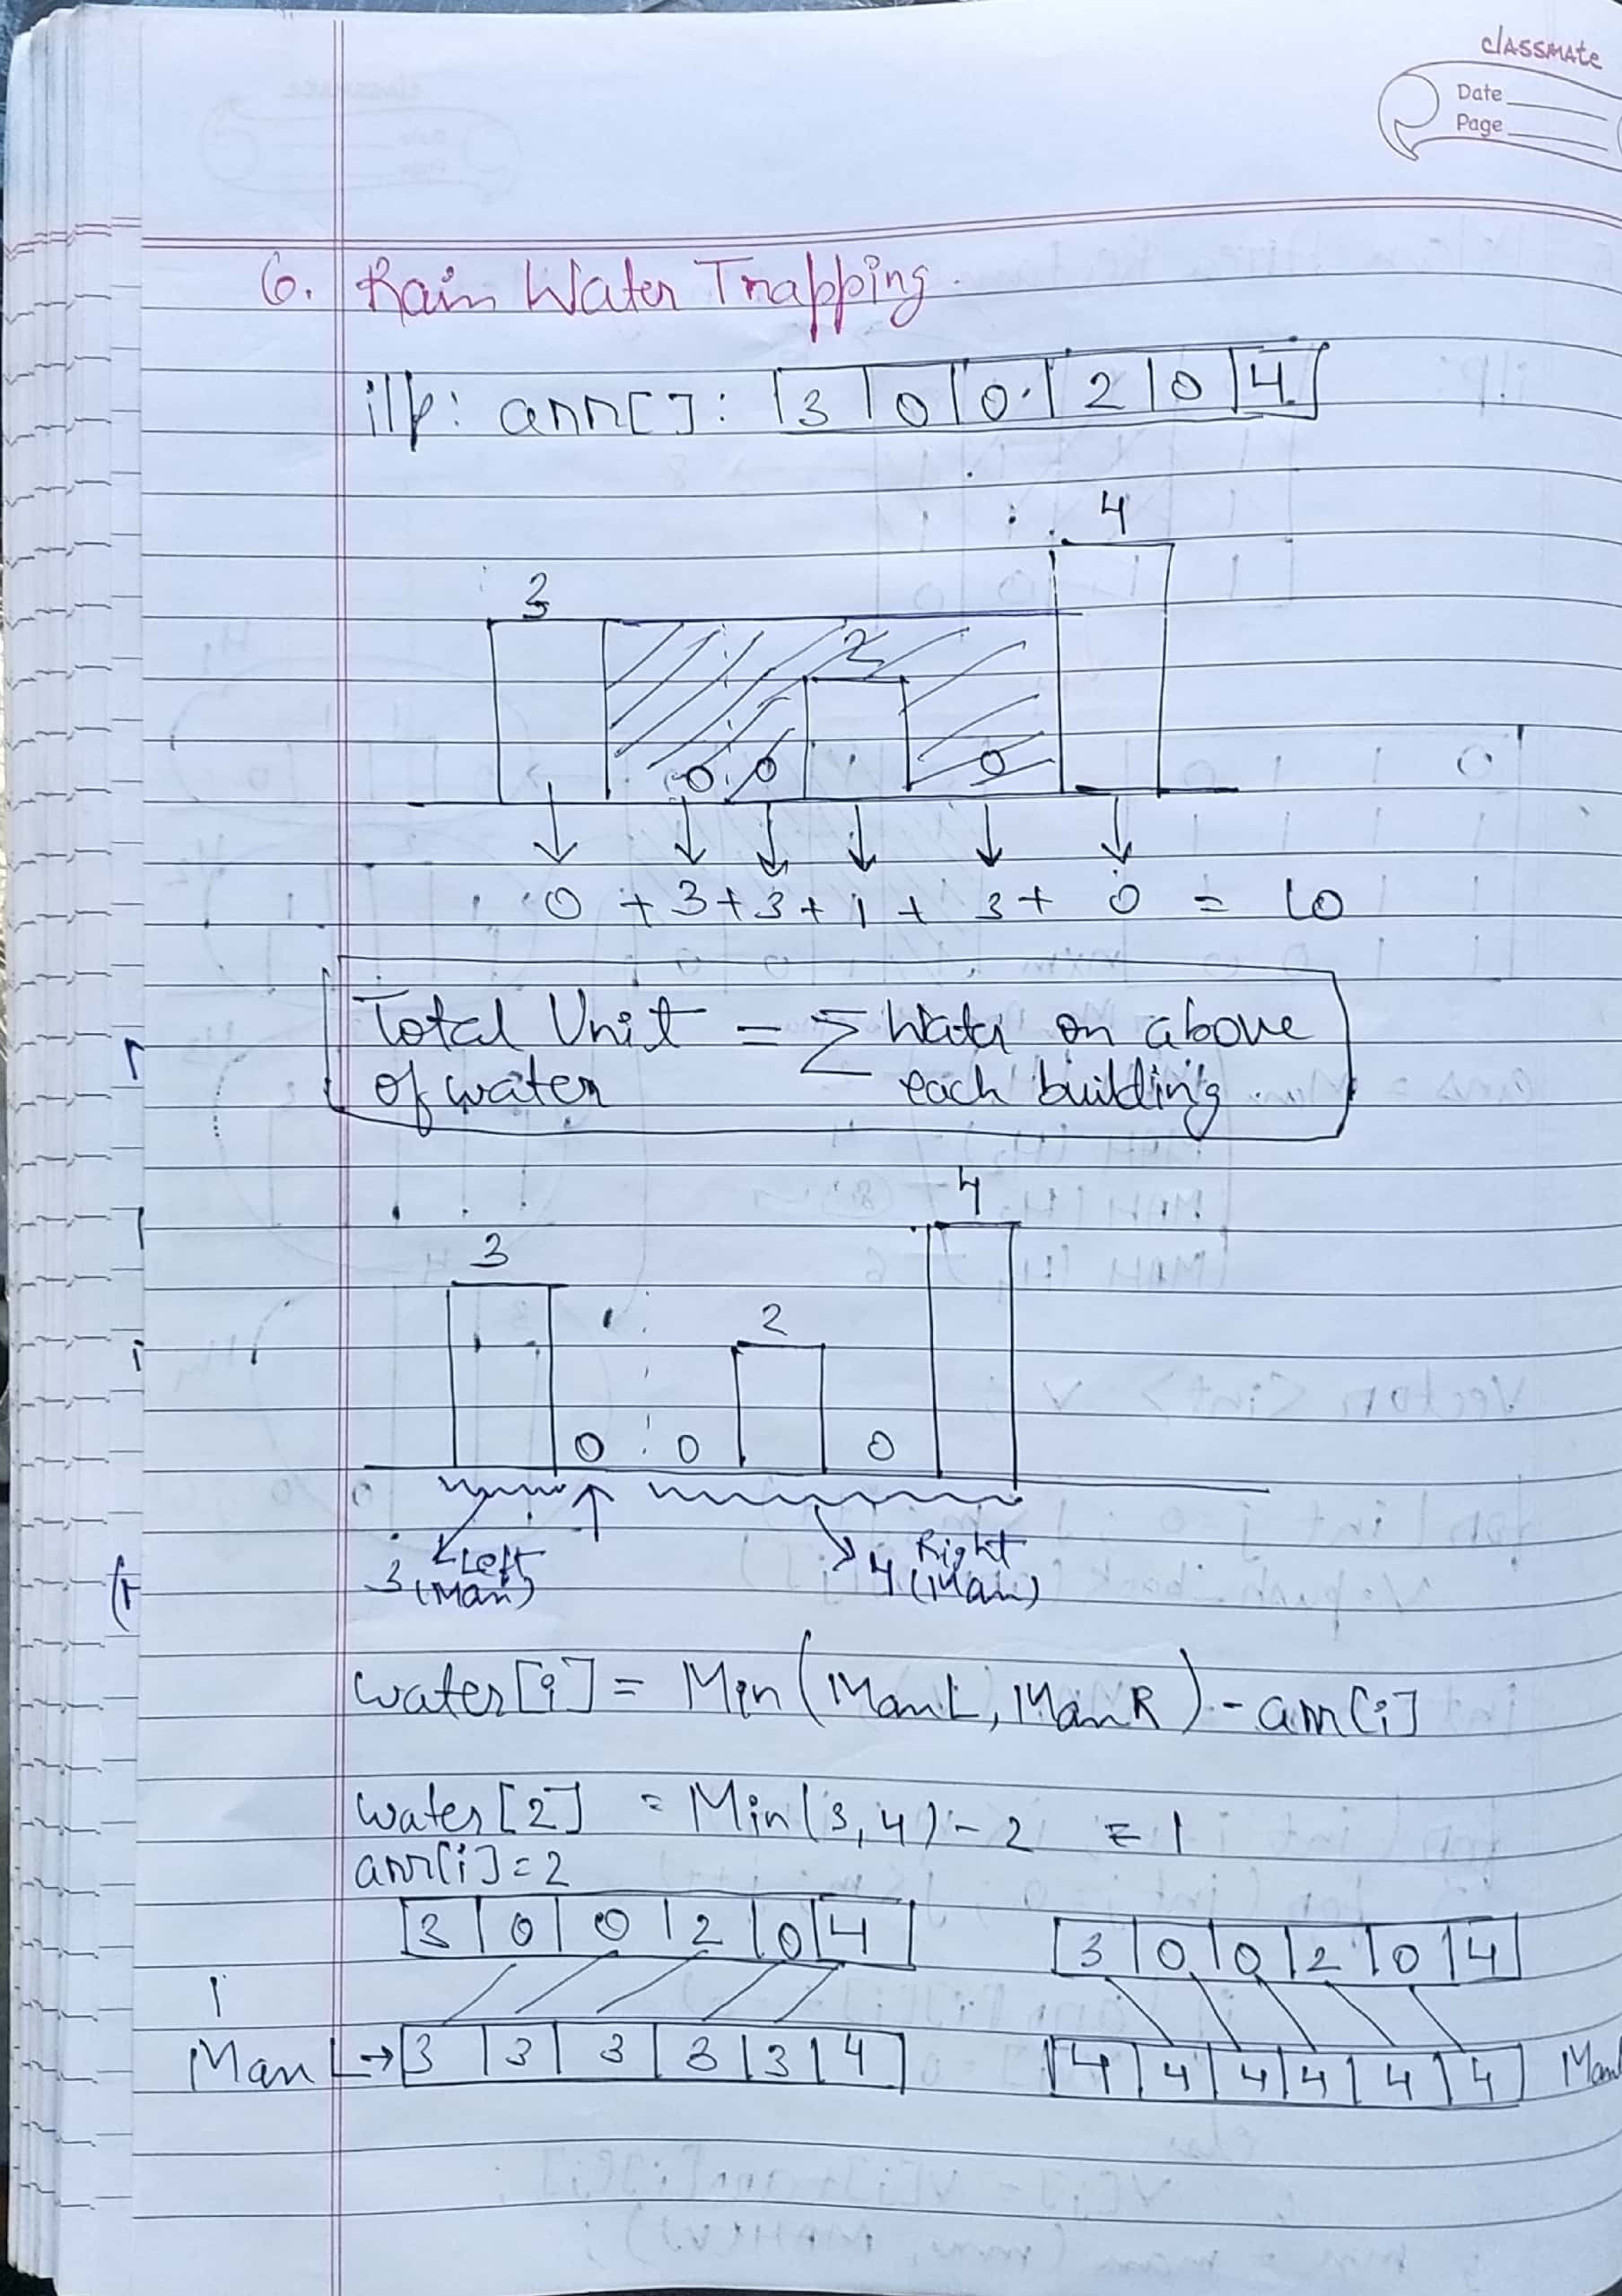 classmate
Date
Page
6. Rain Water Trapping
i/p: arr[]: 3 | 0 | 0 | 2 | 0 | 4
4
3
2
0 0 0
0 + 3 + 3 + 1 + 3 + 0 = 10
Total Unit = Σ Water on above
of water each building.
4
3
2
0 0 0
Left Right
3 (Max) 4 (Max)
water[i] = Min(MaxL, MaxR) - arr[i]
water[2] = Min(3,4) - 2 = 1
arr[i] = 2
3 | 0 | 0 | 2 | 0 | 4 3 | 0 | 0 | 2 | 0 | 4
MaxL → 3 | 3 | 3 | 3 | 3 | 4 4 | 4 | 4 | 4 | 4 | 4